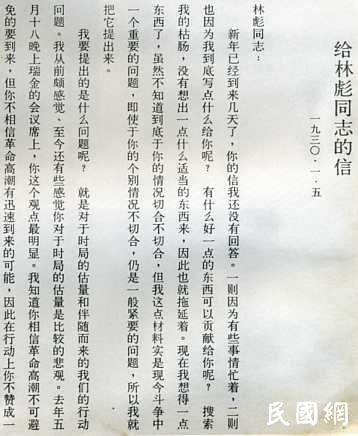 给林彪同志的信
一九三〇·一·五
林彪同志：
新年已经到来几天了，你的信我还没有回答。一则因为有些事情忙着，二则
也因为我到底写点什么给你呢？有什么好一点的东西可以贡献给你呢？搜索
我的枯肠，没有想出一点什么适当的东西来，因此也就拖延着。现在我想得一点
东西了，虽然不知道到底于你的情况切合不切合，但我这点材料实是现今斗争中
一个重要的问题，即使于你的个别情况不切合，仍是一般紧要的问题，所以我就
把它提出来。
我要提出的是什么问题呢？就是对于时局的估量和伴随而来的我们的行动
问题。我从前颇感觉、至今还有些感觉你对于时局的估量是比较的悲观。去年五
月十八晚上瑞金的会议席上，你这个观点最明显。我知道你相信革命高潮不可避
免的要到来，但你不相信革命高潮有迅速到来的可能，因此在行动上你不赞成一
民國網